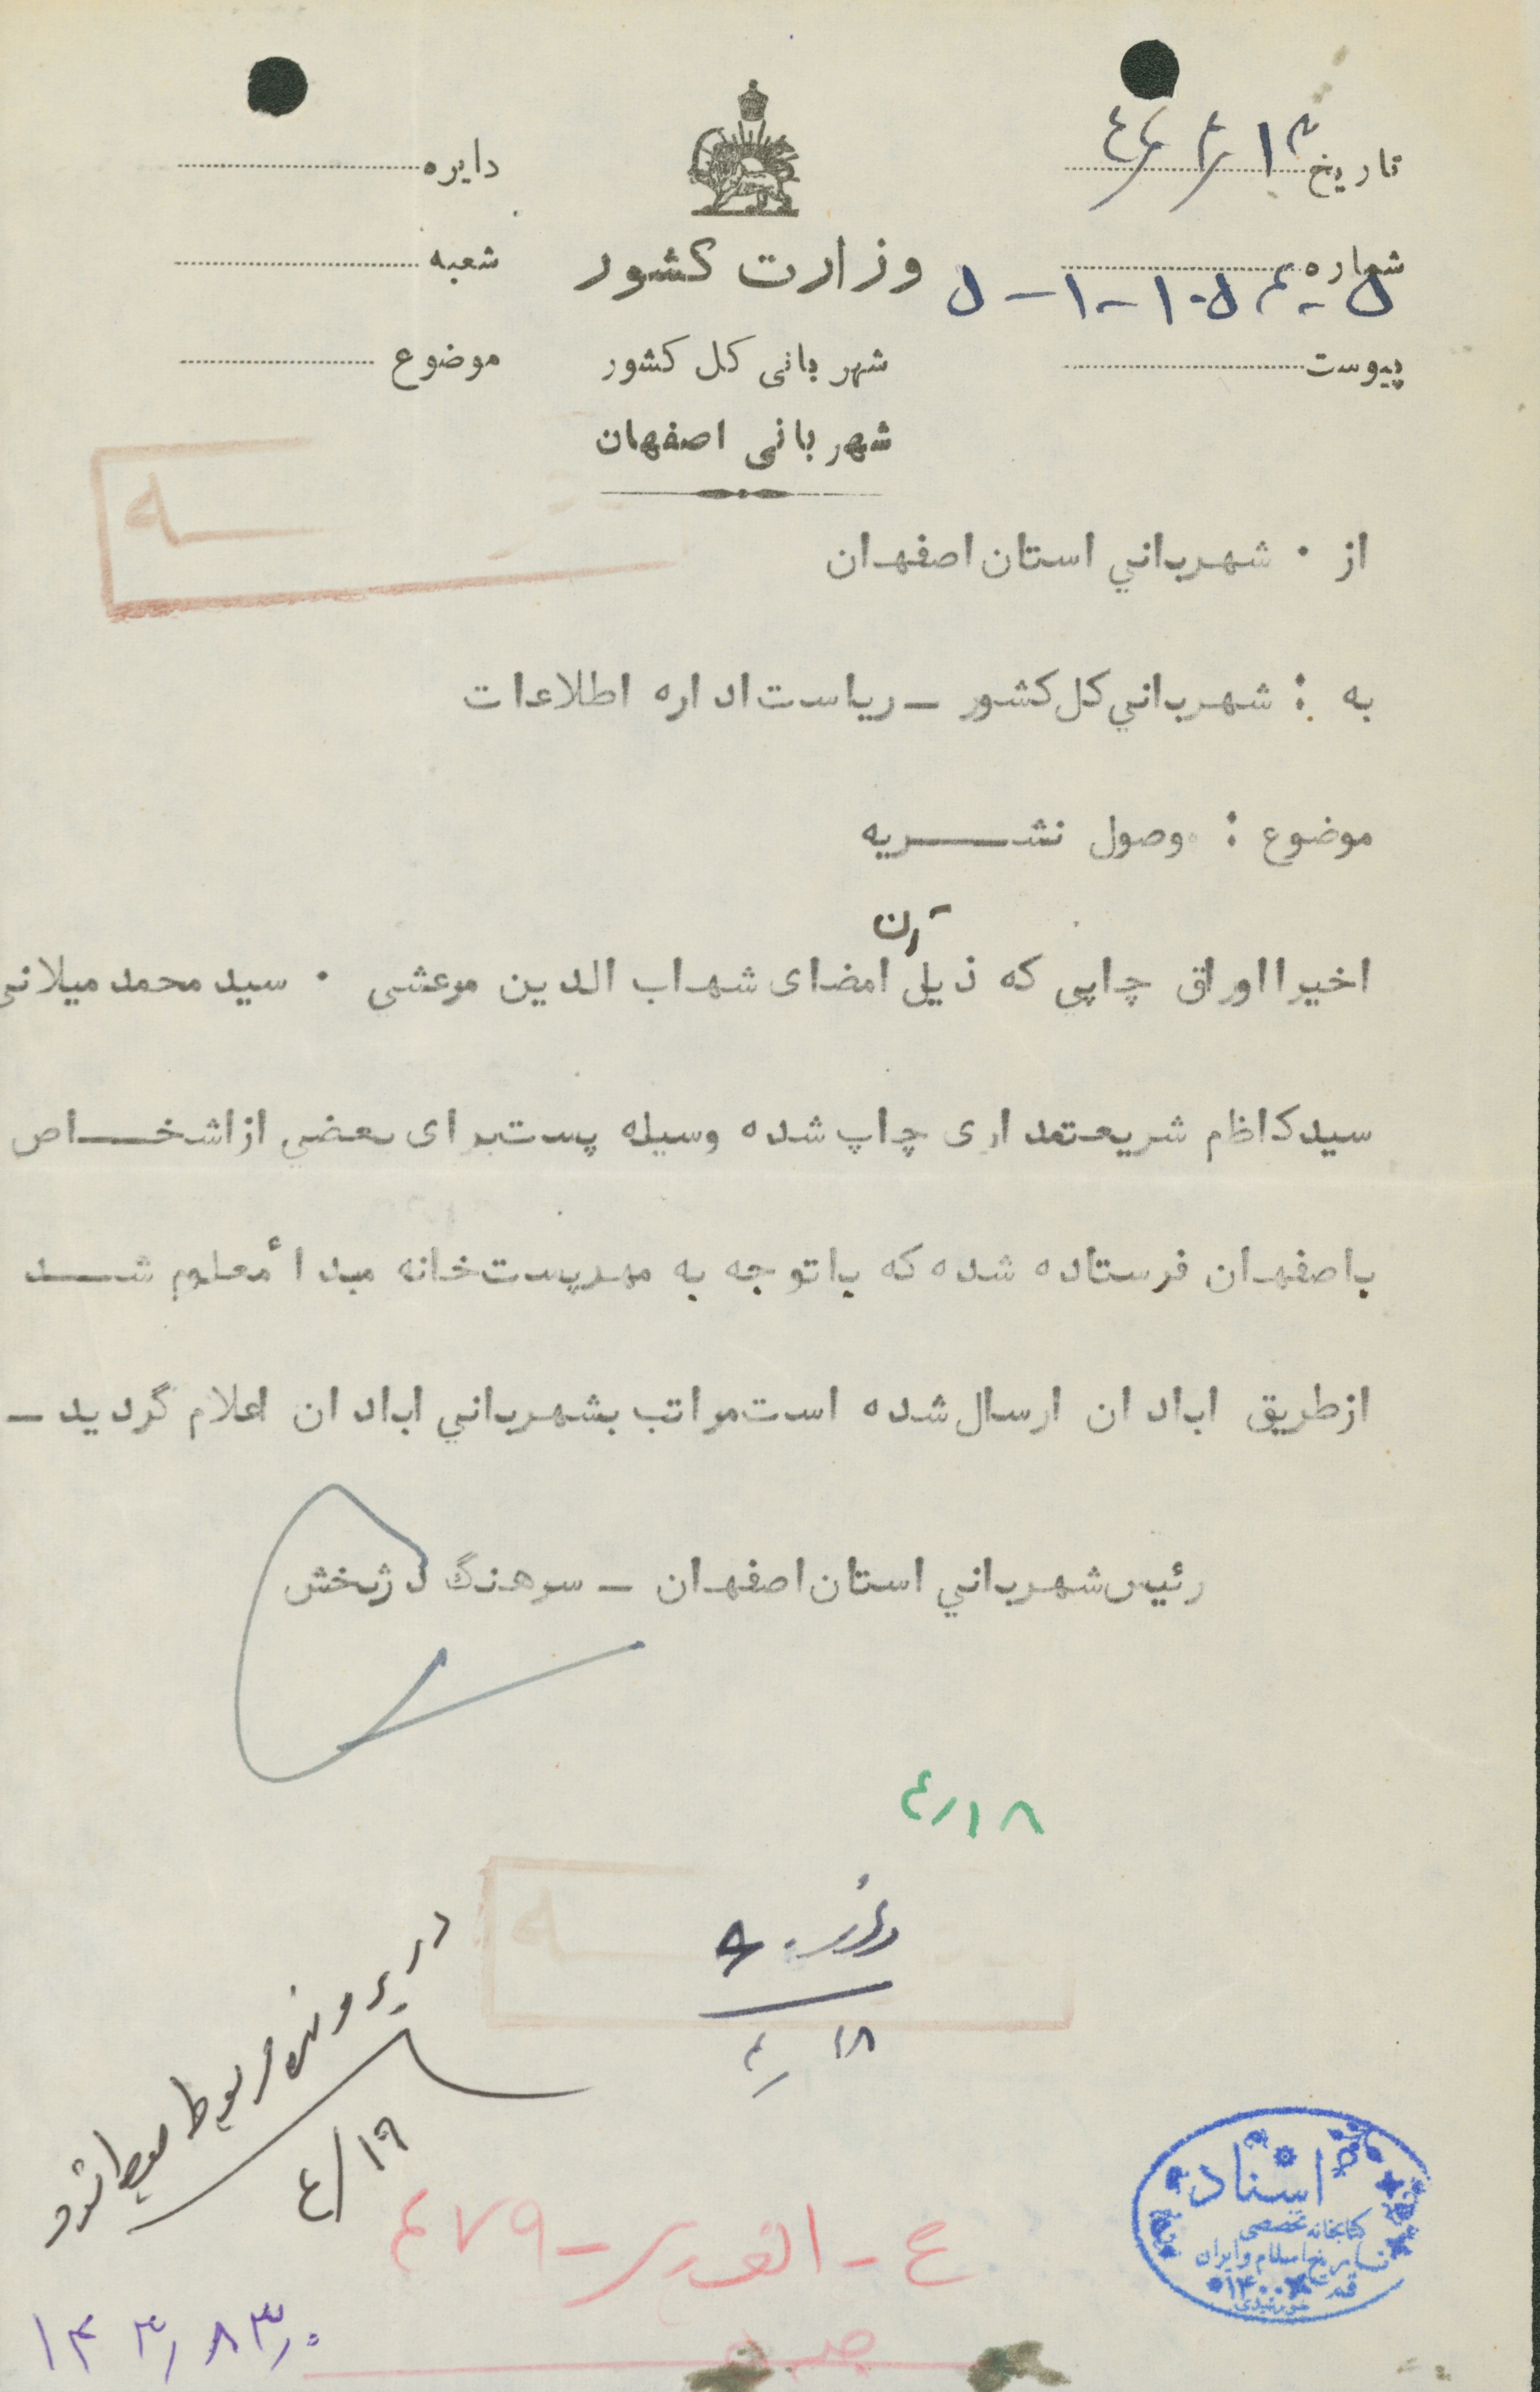 تاریخ
شماره
پیوست
وزارت کشور
شهربانی کل کشور
شهربانی اصفهان
دایره
شعبه
موضوع
از . شهرباني استان اصفهان
به : شهرباني کل کشور ـ ریاست اداره اطلاعات
موضوع : وصول نشریه
آن
اخیرا اوراق چاپي که ذیل امضای شهاب الدین مرعشي . سید محمد میلاني
سید کاظم شریعتمداری چاپ شده وسیله پست برای بعضي از اشخاص
باصفهان فرستاده شده که با توجه به مهر پست خانه مبدأ معلوم شد
از طریق ابادان ارسال شده است مراتب بشهرباني ابادان اعلام گردید ـ
رئیس شهرباني استان اصفهان ـ سرهنگ دژبخش
۴/۱۸
۱۸
در پرونده مربوط ضبط شود
۴/۱۹
اسناد
کتابخانه تخصصی
تاریخ اسلام و ایران